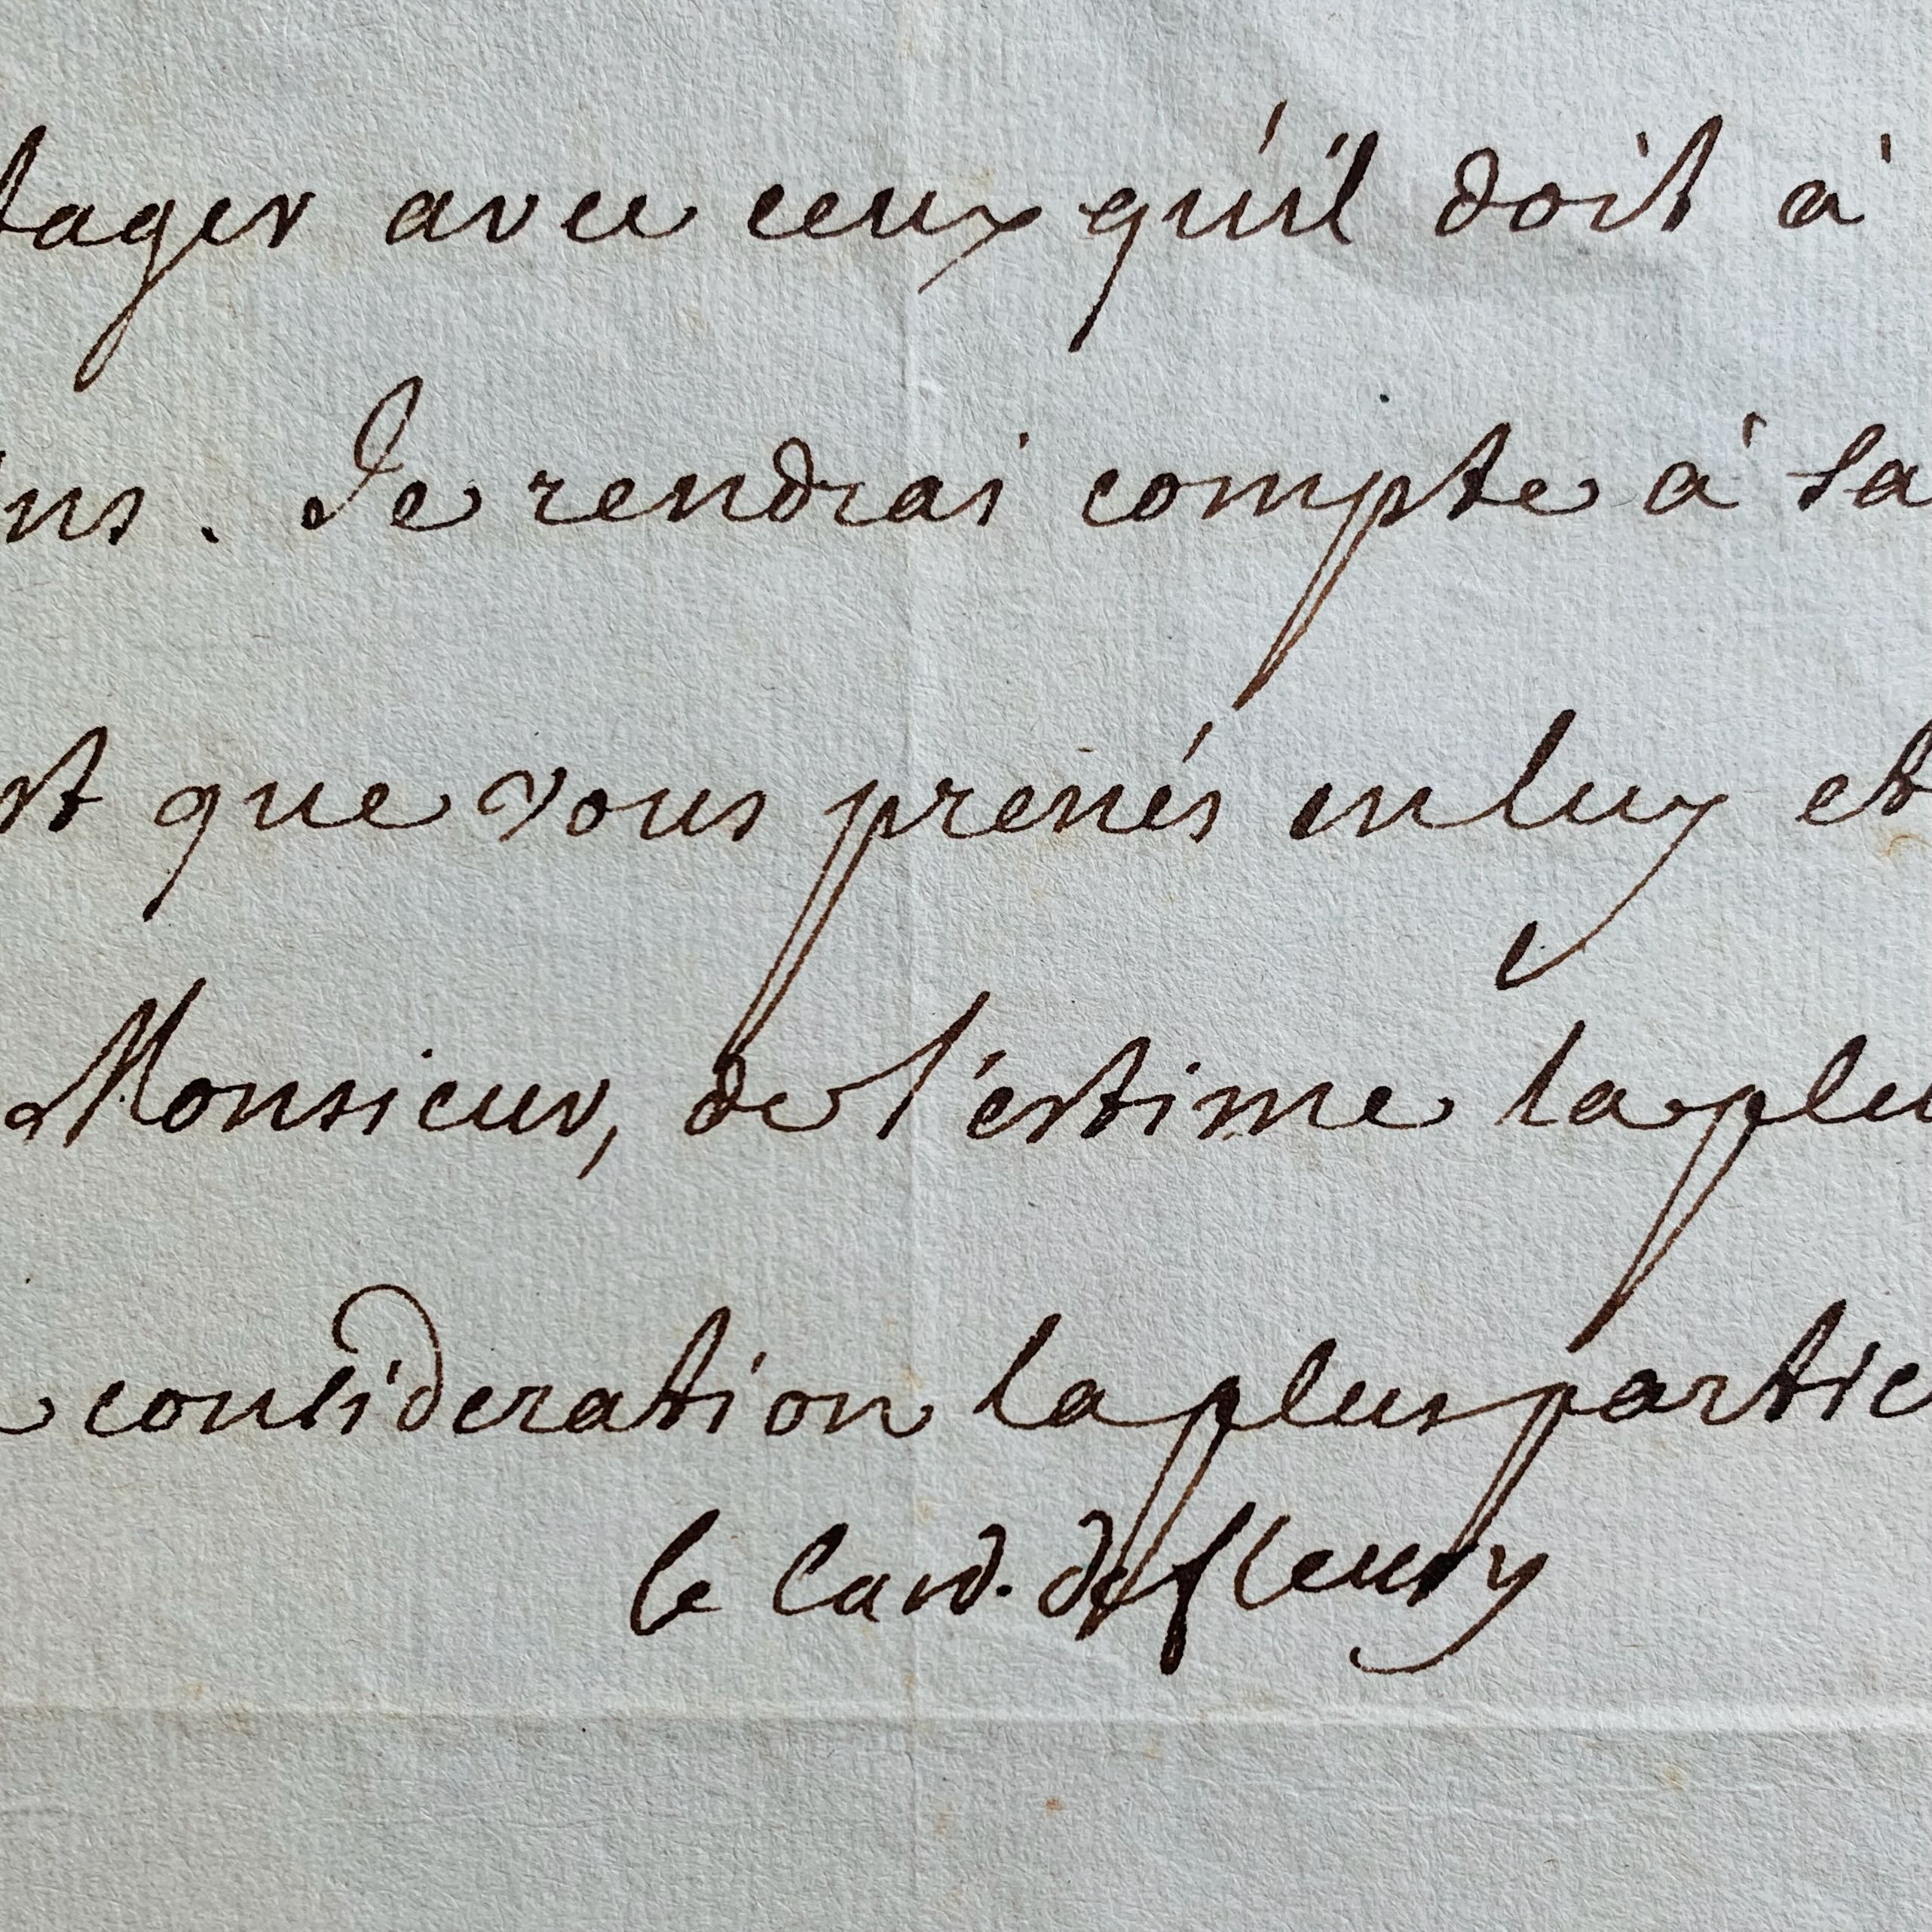 tager avec ceux qu'il doit à
ins. Je rendrai compte à sa
st que vous prenés en luy et
Monsieur, de l'estime la plu
consideration la plus partic
le Card. de fleury